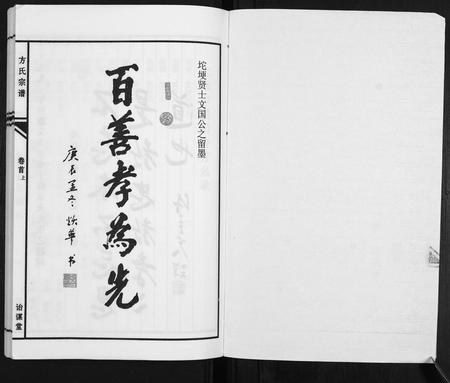 坨埂贤士文国公之留墨
百善孝為先
庚辰孟冬 焕華 书
方氏宗谱
卷首上
诒谋堂